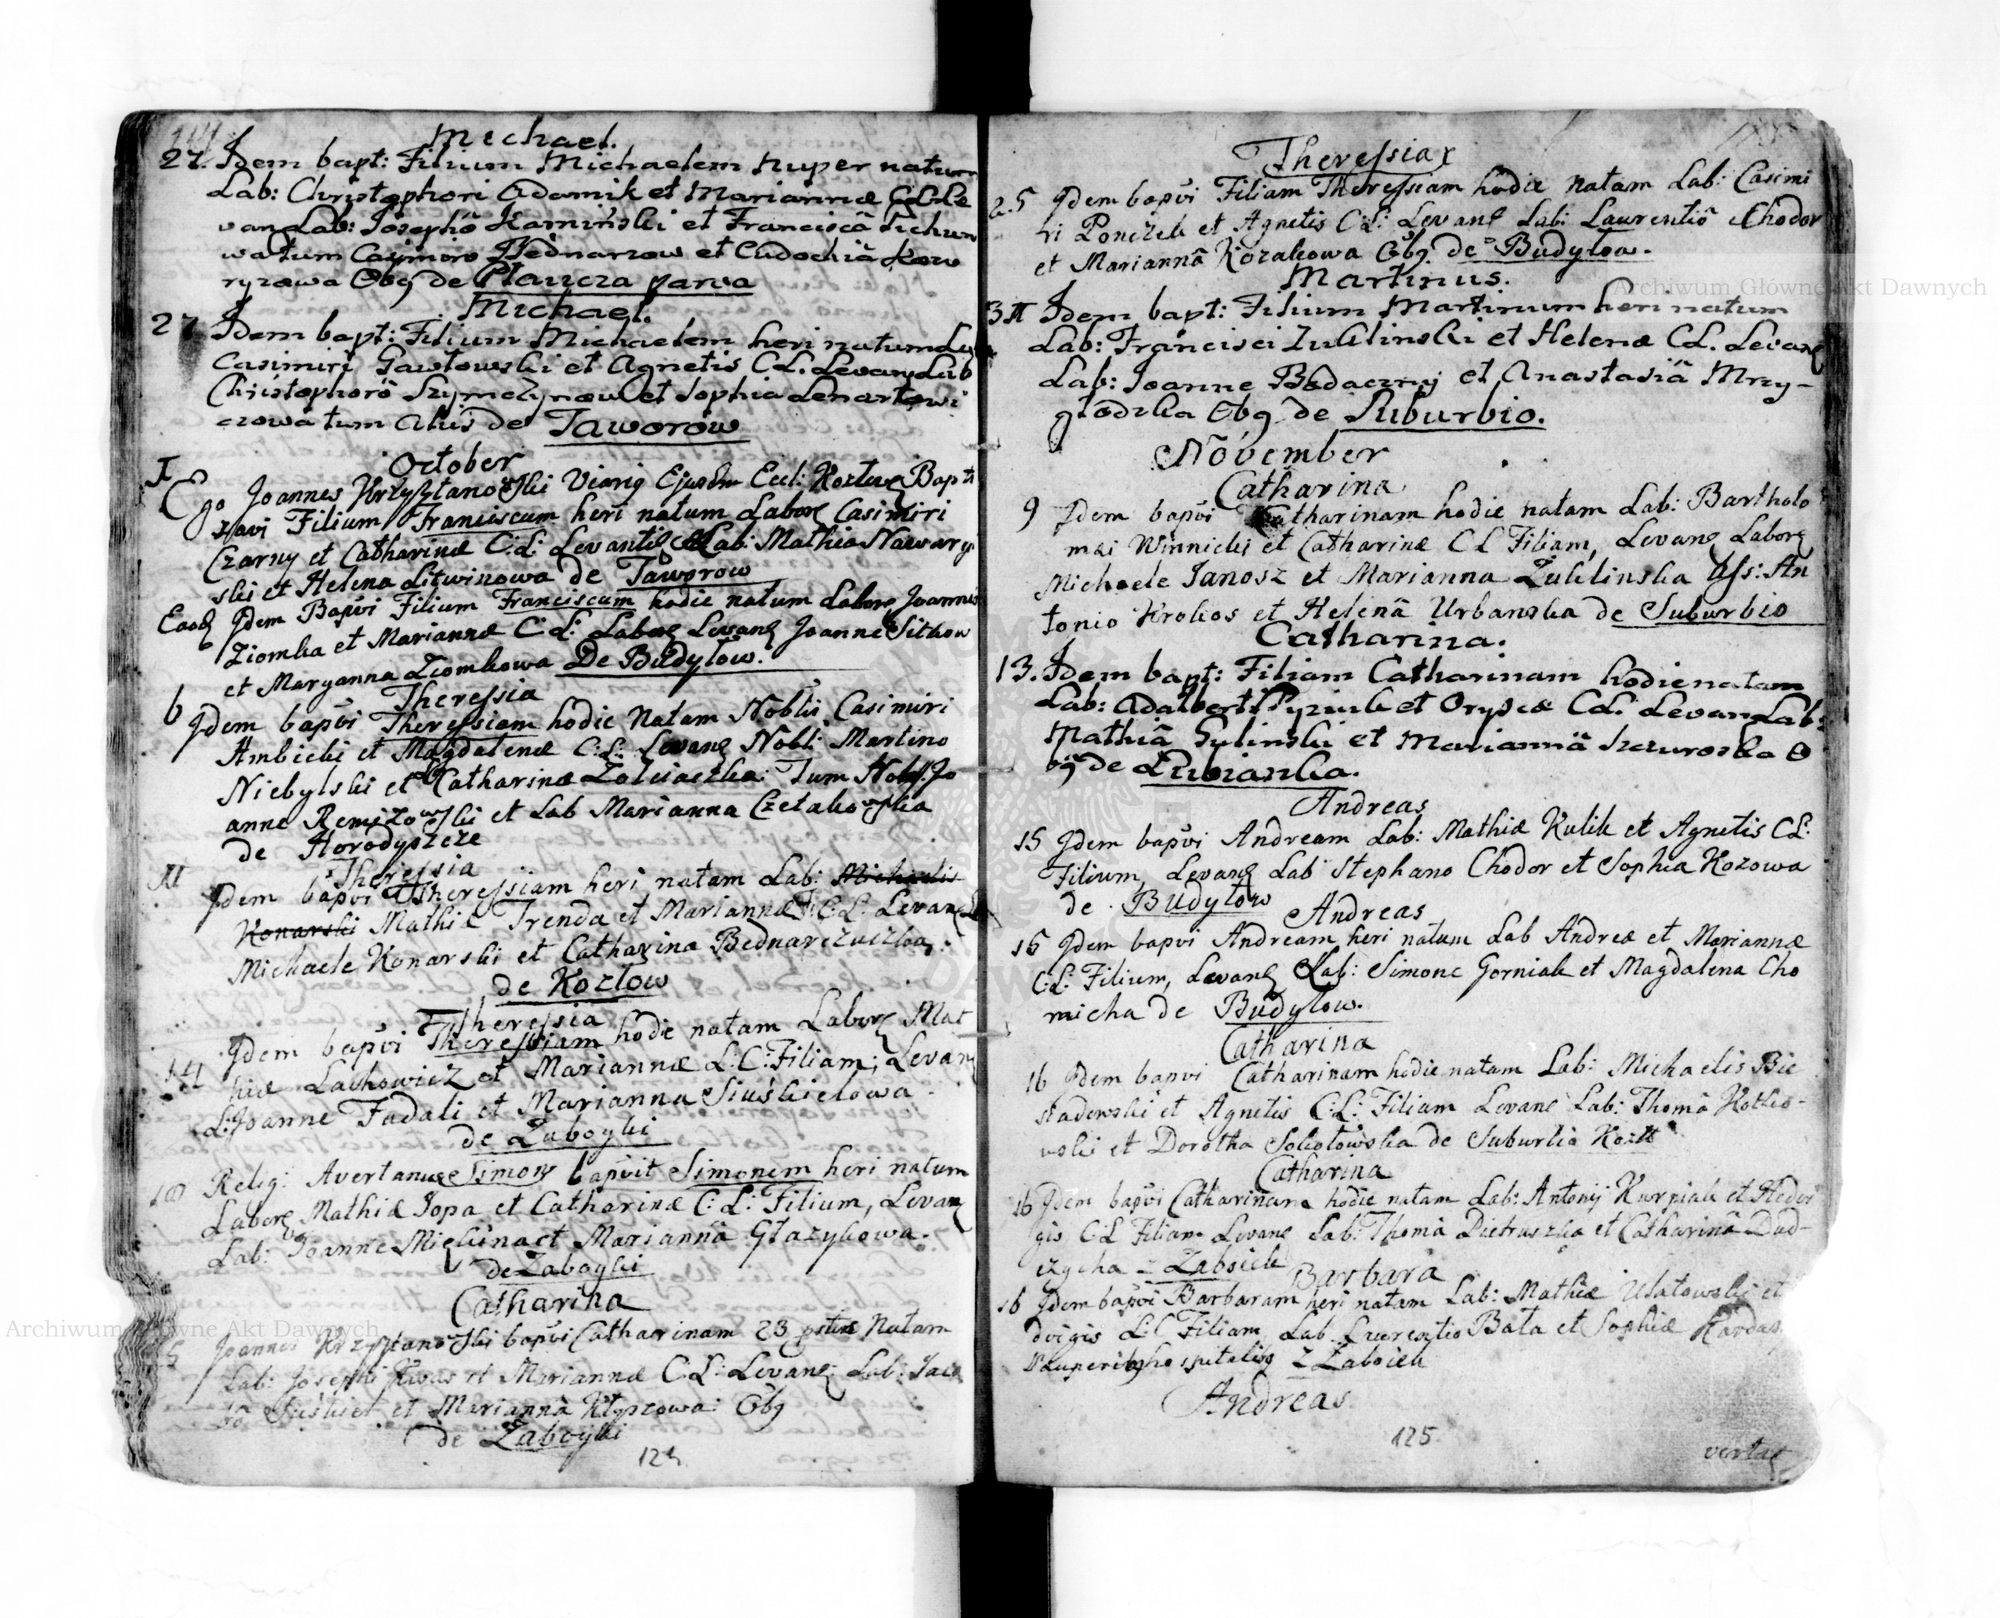 Michael.
27. Idem bapt: Filium Michaelem nuper natum
Lab: Christophori Adamik et Mariannæ C:L: Le
van Lab: Josephô Kamiński et Franciscâ Tichun
wa tum Casimiro Bednarzow et Eudochiâ Kow
ryzowa Obg de Płaucza parva
Michael.
27 Idem bapt: Filium Michaelem heri natum La
Casimiri Gawłowski et Agnetis C.L. Levan Lab
Christophorô Szymczynow et Sophia Lenartowi
czowa tum Aliis de Jaworow
October
I Ego Joannes Krzysztanowski Vicarig Ejusdm Eccl: Kozlov Bapti
zavi Filium Franciscum heri natum Labore Casimiri
Czarny et Catharinæ C:L: Levantig Lab: Mathia Nawary
ski et Helena Litwinowa de Jaworow
Eadg Idem Bapvi Filium Franciscum hodie natum Labore Joannis
Ziomka et Mariannæ C:L: Labore Levang Joanne Sitkow
et Maryanna Ziomkowa De Budyłow.
Theressia
6 Idem bapvi Theressiam hodie Natam Noblis Casimiri
Ambicki et Magdalenæ C:L: Levang Nobli Martino
Niebylski et Catharina Tum Nobl Jo
anne Remizowski et Lab Marianna Czetakowska
de Horodyszcze
Theressia
XI Idem bapvi Theressiam heri natam Lab: Michaelis
Konarski Mathiæ Trenda et Mariannæ C:L: Levang L
Michaele Konarski et Catharina
de Kozłow
Theressia
14 Idem bapvi Theressiam hodie natam Labore Mat
hiæ Lachowicz et Mariannæ L:C: Filiam; Levang
L: Joanne Fadali et Marianna Siuskielowa
de Zaboyki
18 Relig: Avertanus Simon bapvit Simonem heri natum
Labore Mathiæ Jopa et Catharinæ C:L: Filium, Levang
Lab: Joanne Mielima et Mariannâ Głazykowa.
de Zaboyki
Catharina
Joannes Krzysztanowski bapvi Catharinam 23 Natam
Lab: Josephi Kwas et Mariannæ C:L: Levang: Lab: Jaco
bô Suskiel et Mariannâ Obg
de Zaboyki
124
Theressia
25 Idem bapvi Filiam Theressiam hodie natam Lab: Casimi
ri Ponczek et Agnetis C:L: Levang Lab: Laurentiô Chodor
et Mariannâ Kozakowa Obg. de Budyłow.
Martinus.
3II Idem bapt: Filium Martinum heri natum
Lab: Francisci Zuklinski et Helenæ C.L. Levang
Lab: Joanne Badaczny et Anastasiâ Mrzy-
głodzka Obg de Suburbio.
November
Catharina
9 Idem bapvi Catharinam hodie natam Lab: Bartholo
mæi Winnicki et Catharinæ C L Filiam, Levang Laborg
Michaele Janosz et Marianna Zuklinska Ass: An
tonio Krokos et Helenâ Urbanska de Suburbio
Catharina.
13. Idem bapt: Filiam Catharinam hodie natam
Lab: Adalberti Pyziuk et Orysiæ C:L: Levang Lab:
Mathiâ Gylinski et Mariannâ Szzurowska O
bg de Lubianka.
Andreas
15 Idem bapvi Andream Lab: Mathiæ Kulik et Agnetis C L:
Filium, Levang Lab Stephano Chodor et Sophia Kozowa
de Budyłow
Andreas
15 Idem bapvi Andream heri natum Lab Andreæ et Mariannæ
C:L: Filium, Levang Lab: Simone Gorniak et Magdalena Cho
micha de Budyłow.
Catharina
16 Idem bapvi Catharinam hodie natam Lab: Michaelis Bie
niadewski et Agnetis C:L: Filiam Levang Lab: Thomâ Kotko-
wski et Dorotha Sokołowska de Suburbio
Catharina
16 Idem bapvi Catharinam hodie natam Lab: Antonij Kurpiak et Hedvi
gis C:L Filiam Levang Lab: Thomâ Pietruszka et Catharinâ Dud-
czycha z Zaboiek
Barbara
16 Idem bapvi Barbaram heri natam Lab: Mathiæ Ułatowski et
dvigis L:C Filiam Lab Laurentio Bała et Sophiæ Kardas
Pauperibg hospitalisg z Zaboiek
Andreas
125
vertag
Archiwum Główne Akt Dawnych
Archiwum Główne Akt Dawnych